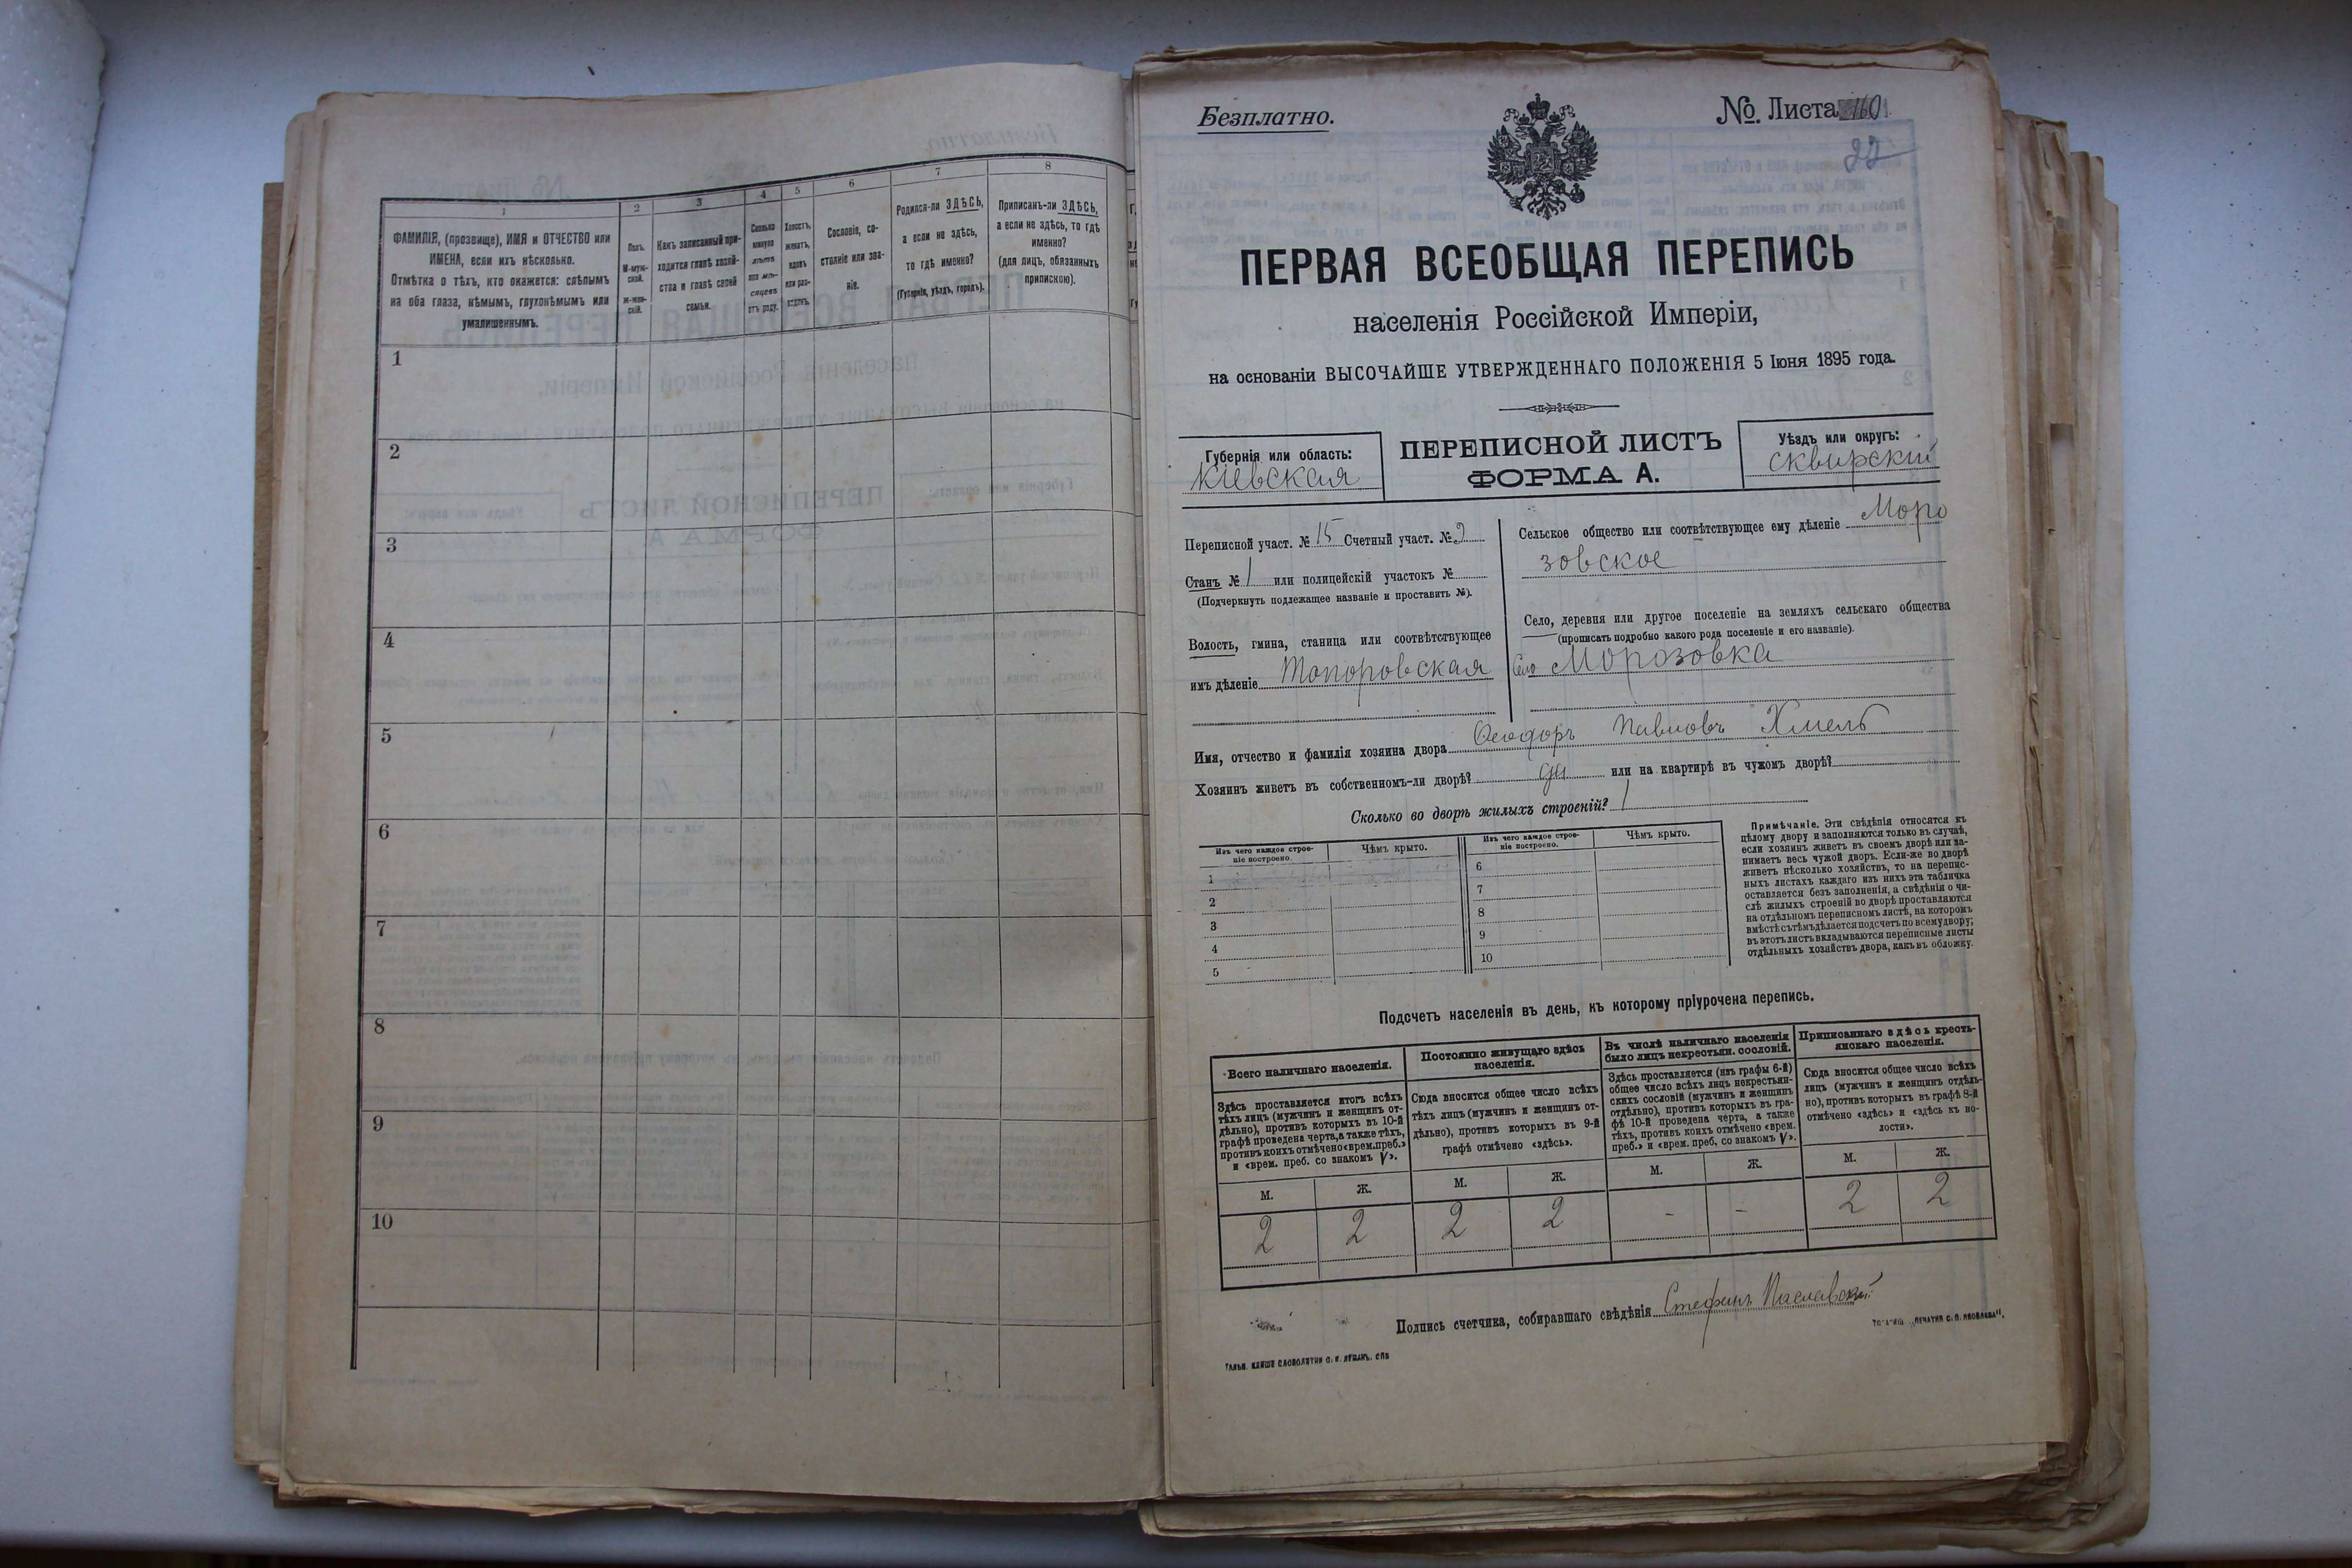 1
2
3
4
5
6
7
8
ФАМИЛІЯ, (прозвище), ИМЯ и ОТЧЕСТВО или
ИМЕНА, если ихъ нѣсколько.
Отмѣтка о тѣхъ, кто окажется: слѣпымъ
на оба глаза, нѣмымъ, глухонѣмымъ или
умалишеннымъ.
Полъ.
М-муж-
ской.
Ж-жен-
скій.
Какъ записанный при-
ходится главѣ хозяй-
ства и главѣ своей
семьи.
Сколько
минуло
лѣтъ
или мѣ-
сяцевъ
отъ роду.
Холостъ,
женатъ,
вдовъ
или раз-
веденъ.
Сословіе, со-
стояніе или зва-
ніе.
Родился-ли ЗДѢСЬ,
а если не здѣсь,
то гдѣ именно?
(Губернія, уѣздъ, городъ).
Приписанъ-ли ЗДѢСЬ,
а если не здѣсь, то гдѣ
именно?
(для лицъ, обязанныхъ
припискою).
1
2
3
4
5
6
7
8
9
10
Безплатно.
№. Листа 160
22
ПЕРВАЯ ВСЕОБЩАЯ ПЕРЕПИСЬ
населенія Россійской Имперіи,
на основаніи ВЫСОЧАЙШЕ УТВЕРЖДЕННАГО ПОЛОЖЕНІЯ 5 Іюня 1895 года.
Губернія или область:
Кіевская
ПЕРЕПИСНОЙ ЛИСТЪ
ФОРМА А.
Уѣздъ или округъ:
Сквирскій
Переписной участ. № 15 Счетный участ. № 2
Станъ № 1 или полицейскій участокъ №
(Подчеркнуть подлежащее названіе и проставить №).
Волость, гмина, станица или соотвѣтствующее
имъ дѣленіе Топоровская
Сельское общество или соотвѣтствующее ему дѣленіе Моро
зовское
Село, деревня или другое поселеніе на земляхъ сельскаго общества
(прописать подробно какого рода поселеніе и его названіе).
Село Морозовка
Имя, отчество и фамилія хозяина двора Ѳеодоръ Павловъ Хмель
Хозяинъ живетъ въ собственномъ-ли дворѣ? да или на квартирѣ въ чужомъ дворѣ?
Сколько во дворѣ жилыхъ строеній? 1
Изъ чего каждое строе-
ніе построено.
Чѣмъ крыто.
Изъ чего каждое строе-
ніе построено.
Чѣмъ крыто.
1
2
3
4
5
6
7
8
9
10
Примѣчаніе. Эти свѣдѣнія относятся къ
цѣлому двору и заполняются только въ случаѣ,
если хозяинъ живетъ въ своемъ дворѣ или за-
нимаетъ весь чужой дворъ. Если-же во дворѣ
живетъ нѣсколько хозяйствъ, то на перепис-
ныхъ листахъ каждаго изъ нихъ эта табличка
оставляется безъ заполненія, а свѣдѣнія о чи-
слѣ жилыхъ строеній во дворѣ проставляются
на отдѣльномъ переписномъ листѣ, на которомъ
вмѣстѣ съ тѣмъ дѣлается подсчетъ по всему двору;
въ этотъ листъ вкладываются переписные листы
отдѣльныхъ хозяйствъ двора, какъ въ обложку.
Подсчетъ населенія въ день, къ которому пріурочена перепись.
Всего наличнаго населенія.
Здѣсь проставляется итогъ всѣхъ
тѣхъ лицъ (мужчинъ и женщинъ от-
дѣльно), противъ которыхъ въ 10-й
графѣ проведена черта, а также тѣхъ,
противъ коихъ отмѣчено «врем. преб.»
и «врем. преб. со знакомъ V».
Постоянно живущаго здѣсь
населенія.
Сюда вносится общее число всѣхъ
тѣхъ лицъ (мужчинъ и женщинъ от-
дѣльно), противъ которыхъ въ 9-й
графѣ отмѣчено «здѣсь».
Въ числѣ наличнаго населенія
было лицъ некрестьян. сословій.
Здѣсь проставляется (изъ графы 6-й)
общее число всѣхъ лицъ некрестьян-
скихъ сословій (мужчинъ и женщинъ
отдѣльно), противъ которыхъ въ гра-
фѣ 10-й проведена черта, а также
тѣхъ, противъ коихъ отмѣчено «врем.
преб.» и «врем. преб. со знакомъ V».
Приписаннаго здѣсь кресть-
янскаго населенія.
Сюда вносится общее число всѣхъ
лицъ (мужчинъ и женщинъ отдѣль-
но), противъ которыхъ въ графѣ 8-й
отмѣчено «здѣсь» и «здѣсь къ во-
лости».
М. Ж. М. Ж. М. Ж. М. Ж.
2 2 2 2 - - 2 2
Подпись счетчика, собиравшаго свѣдѣнія Стефанъ Паславскій